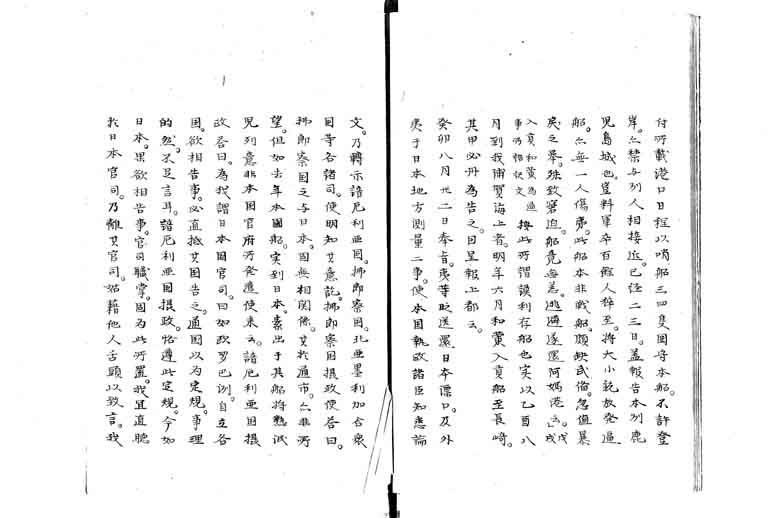 付所載港口日程以哨船三四隻囲守本船。不許登
岸。亦禁与列人相接近。已経二三日。蓋報告本列鹿
児島城也。豈料軍卒百餘人猝至。将大小銃放発逼
船。亦無一人傷。此船本非戦船。頗欠武備。忽値暴
戻之挙。殊致窘迫。船竟無恙。逃海遂還阿媽港云。戊
月到我浦賀海上者。明年六月和蘭入貢船至長崎。
其甲必丹為告之。因呈報上都云。
癸卯八月廿二日奉旨。夷等送還日本漂口。及外
夷于日本地方測量二事。使本国執政諸臣知悉論
文。乃転示諳厄利亜国。払郎察国。北亜墨利加合衆
国等各諸司。使明知其意訖。払郎察国摂政使答曰。
払郎察国之与日本。国無相関係。其於通市。亦非所
望。但如去年本国船。実到日本。素出于其船将懇
児列意。非本国官府所発遣使来云。諳厄利亜国摂
政答曰。為我謂日本国官司。曰如欧羅巴例。自立各
国。欲相告事。必直抵其国告之。通国以為定規。事理
的然。不足言耳。諳厄利亜国摂政。恪遵此定規。今如
日本。果欲相告事。官司職掌。固為此所置。我宜直聴
於日本官司。乃離其官司。姑藉他人舌頭以致言。我